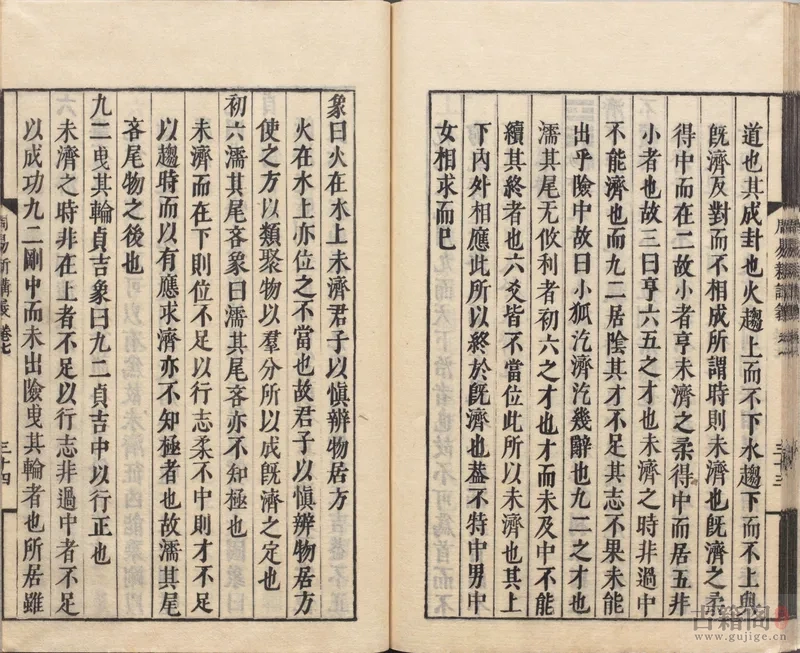 道也其成卦也火趨上而不下水趨下而不上與
旣濟反對而不相成所謂時則未濟也旣濟之柔
得中而在二故小者亨未濟之柔得中而居五非
小者也故三曰亨六五之才也未濟之時非過中
不能濟也而九二居陰其才不足其志不果未能
出乎險中故曰小狐汔濟汔幾辭也九二之才也
濡其尾无攸利者初六之才也才而未及中不能
續其終者也六爻皆不當位此所以未濟也其上
下內外相應此所以終於旣濟也葢不特中男中
女相求而巳
象曰火在水上未濟君子以愼辨物居方
火在水上亦位之不當也故君子以愼辨物居方
使之方以類聚物以羣分所以成旣濟之定也
初六濡其尾吝象曰濡其尾吝亦不知極也
未濟而在下則位不足以行志柔不中則才不足
以趨時而以有應求濟亦不知極者也故濡其尾
吝尾物之後也
九二曳其輪貞吉象曰九二貞吉中以行正也
未濟之時非在上者不足以行志非過中者不足
以成功九二剛中而未出險曳其輪者也所居雖
周易新講義 卷七
三十四
古籍阁
www.gujige.cn